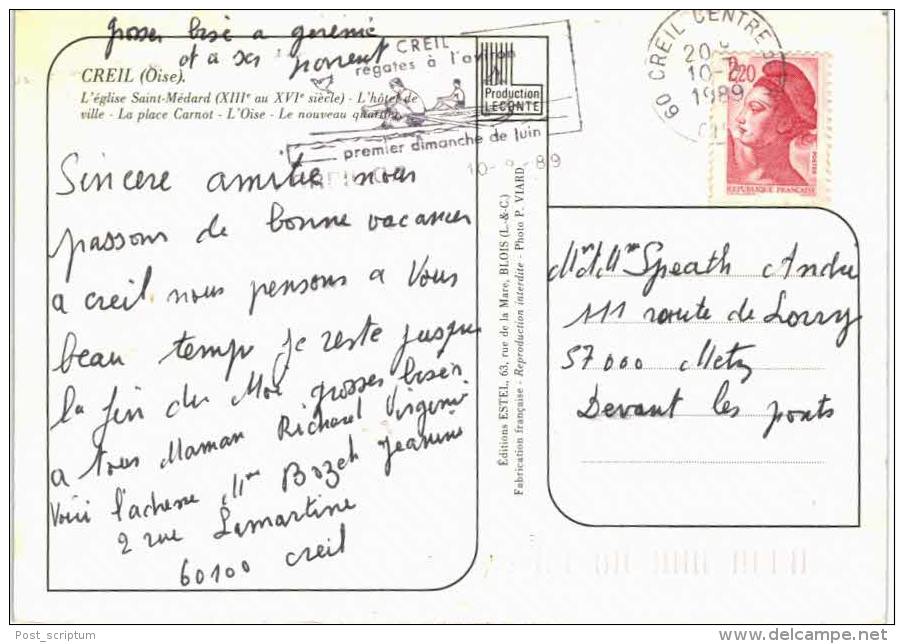 grosses bisé a gerémie
et a ses parrent
CREIL (Oise).
L'église Saint-Médard (XIIIe au XVIe siècle) - L'hôtel de
ville - La place Carnot - L'Oise - Le nouveau quartier.
CREIL
régates à l'aviron
premier dimanche de juin
Production
LECONTE
CREIL CENTRE
60
20
10-
1989
10- -89
2,20
POSTES
REPUBLIQUE FRANÇAISE
Sincere amitie nous
passons de bonne vacances
a creil nous pensons a Vous
beau temps je reste jusque
la fin du Moi grosses bisés
a tous Maman Richard Virginie
Voici l'adresse Mme Bozek Jeanine
2 rue Lamartine
60100 creil
Éditions ESTEL, 63, rue de la Mare, BLOIS (L.-&-C.)
Fabrication française - Reproduction interdite - Photo P. VIARD
Mr Mme Speath André
111 route de Lorry
57000 Metz
Devant les ponts
Post_scriptum
www.delcampe.net